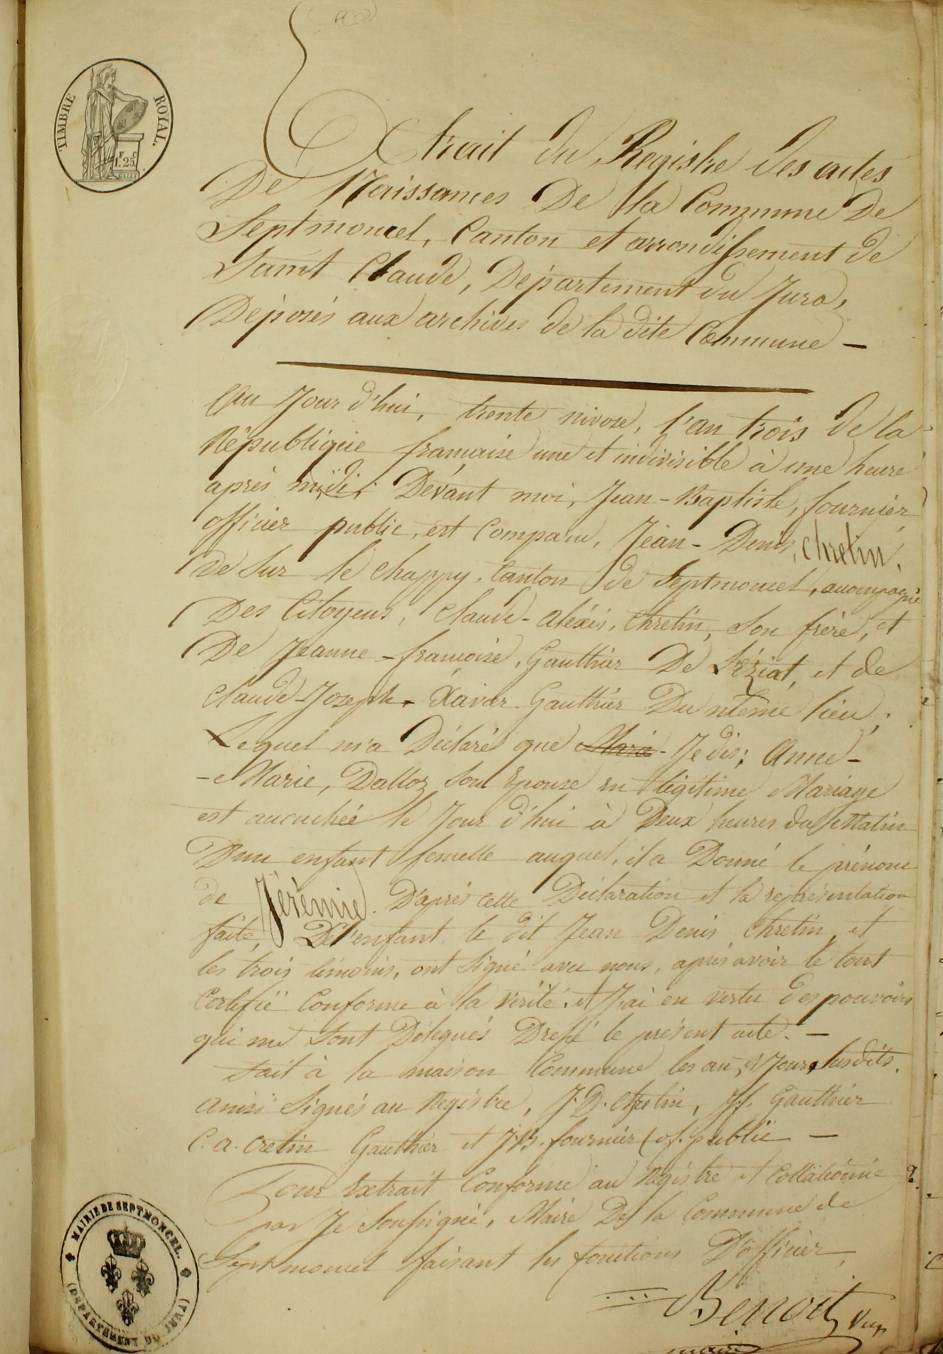 TIMBRE ROYAL.
1f 25c
Extrait du Registre des actes
De Naissances De la Commune De
Septmoncel, Canton et arrondissement de
Saint Claude, Département du Jura,
Déposés aux archives de la dite Commune —
Au Jour d'hui, trente nivose, l'an trois de la
République française une et indivisible à une heure
après midi. Dévant moi, Jean-Baptiste, fournier
officier public, est comparu, Jean-Denis, Chretin,
de sur le Chappy, Canton de Septmoncel, acompagné
Des Citoyens, Claude-Aléxis, Chretin, son frère, et
De Jeanne-françoise, Gauthier De Léziat, et de
Claude-Jozeph-Xavier-Gauthier Du même lieu;
Lequel m'a Déclaré que Marie Je dis; Anne-
-Marie, Dalloz son Epouse en légitime Mariage
est acouchée le Jour d'hui à Deux heures du Matin
D'une enfant femelle auquel, il a Donné le prénom
de Jérémie. D'après cette Déclaration et la représentation
faite, De l'enfant le dit Jean Denis Chretin, et
les trois témoins, ont signé avec nous, après avoir le tout
Certifié Conforme à la vérité. et J'ai en vertu des pouvoirs
qui me sont Délégués Dressé le présent acte. —
fait à la maison Commune les an, et Jour susdits.
ainsi signés au Registre, J. D. Chretin, Jf. Gauthier
C. a. Cretin Gauthier et J. B. fournier, of. public —
Pour Extrait Conforme au Registre et Collationné
par Je Soussigné, Maire De la Commune de
Septmoncel faisant les fonctions D'officier,
Benoit
MAIRIE DE SEPTMONCEL.
(DEPARTEMENT DU JURA)